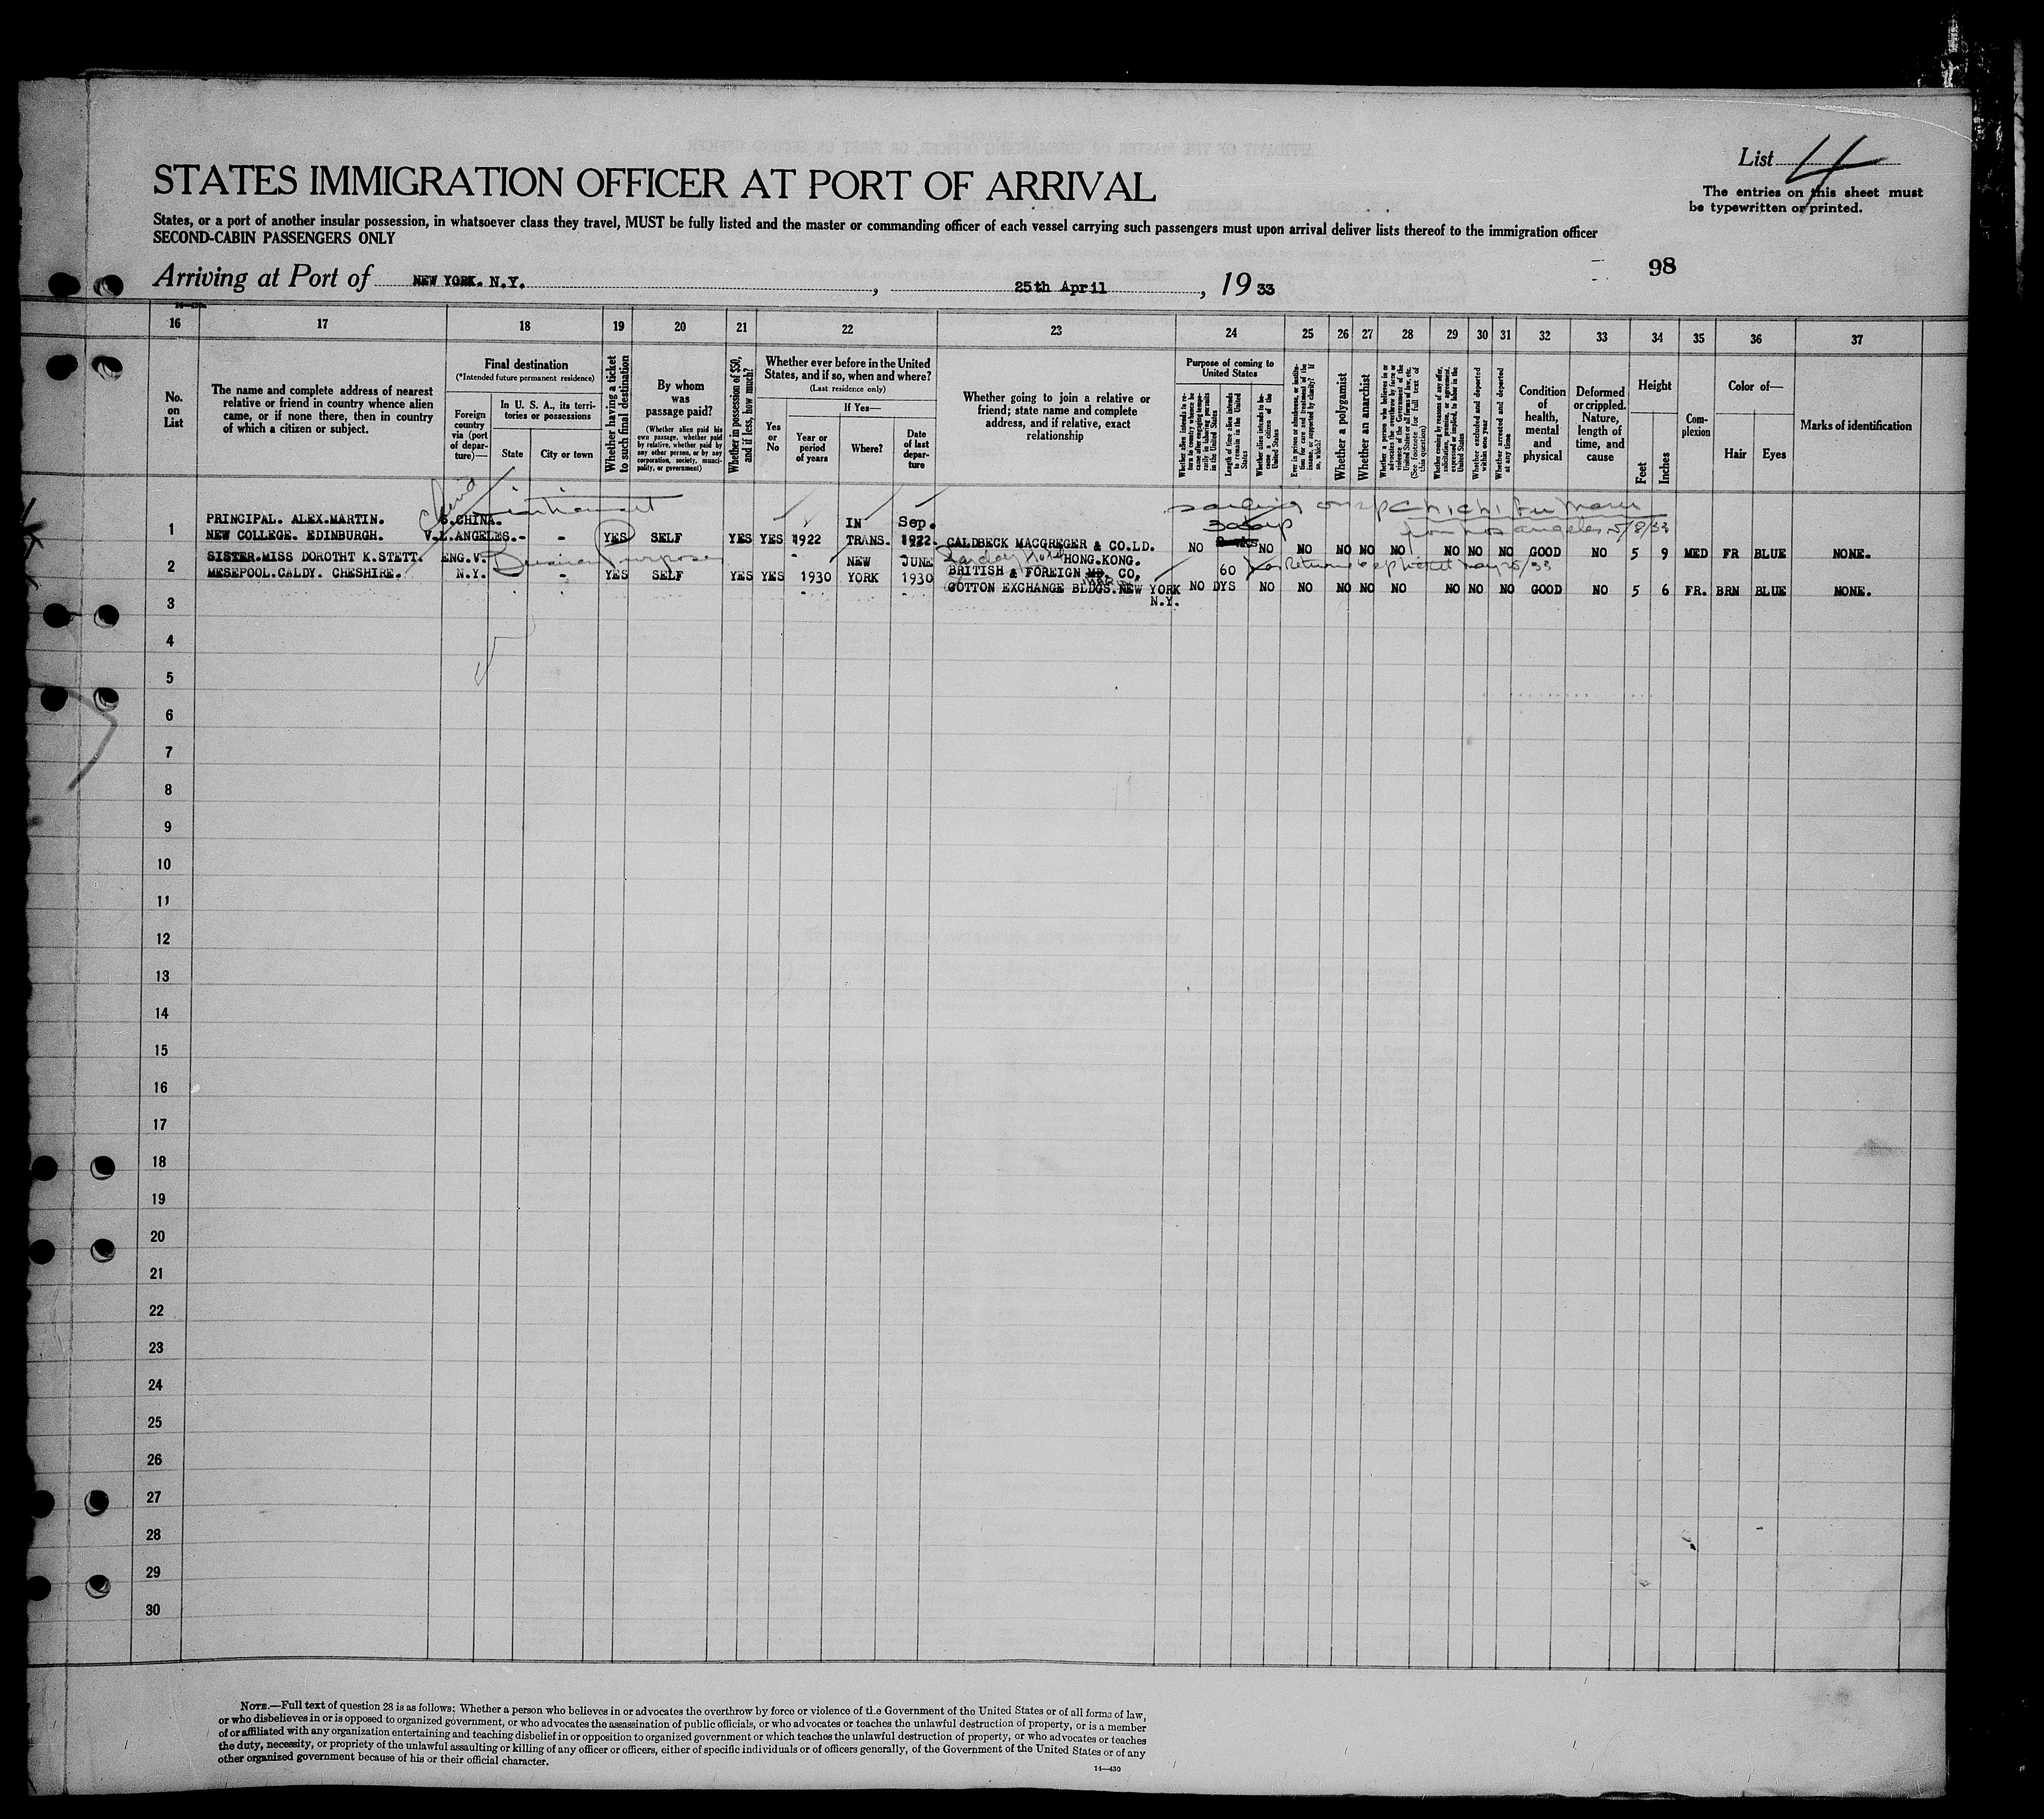 List 4
The entries on this sheet must
be typewritten or printed.
STATES IMMIGRATION OFFICER AT PORT OF ARRIVAL
States, or a port of another insular possession, in whatsoever class they travel, MUST be fully listed and the master or commanding officer of each vessel carrying such passengers must upon arrival deliver lists thereof to the immigration officer
SECOND-CABIN PASSENGERS ONLY
98
Arriving at Port of NEW YORK. N.Y. , 25th April , 19 33
16 17 18 19 20 21 22 23 24 25 26 27 28 29 30 31 32 33 34 35 36 37
No.
on
List
The name and complete address of nearest
relative or friend in country whence alien
came, or if none there, then in country
of which a citizen or subject.
Final destination
(*Intended future permanent residence)
Foreign
country
via (port
of depar-
ture)—
In U. S. A., its terri-
tories or possessions
State
City or town
Whether having a ticket
to such final destination
By whom
was
passage paid?
(Whether alien paid his
own passage, whether paid
by relative, whether paid by
any other person, or by any
corporation, society, munici-
pality, or government)
Whether in possession of $50,
and if less, how much?
Whether ever before in the United
States, and if so, when and where?
(Last residence only)
Yes
or
No
If Yes—
Year or
period
of years
Where?
Date
of last
depar-
ture
Whether going to join a relative or
friend; state name and complete
address, and if relative, exact
relationship
Purpose of coming to
United States
Whether alien intends to re-
turn to country whence he
came after engaging tempo-
rarily in laboring pursuits
in the United States
Length of time alien intends
to remain in the United
States
Whether alien intends to be-
come a citizen of the
United States
Ever in prison or almshouse, or institu-
tion for care and treatment of the
insane, or supported by charity? If
so, which?
Whether a polygamist
Whether an anarchist
Whether a person who believes in or
advocates the overthrow by force or
violence of the Government of the
United States or all forms of law, etc.
(See footnote for full text of
this question)
Whether coming by reasons of any offer,
solicitation, promise, or agreement,
expressed or implied, to labor in the
United States
Whether excluded and deported
within one year
Whether arrested and deported
at any time
Condition
of
health,
mental
and
physical
Deformed
or crippled.
Nature,
length of
time, and
cause
Height
Feet
Inches
Com-
plexion
Color of—
Hair
Eyes
Marks of identification
China
sailing on
from Los Angeles 5/8/33
1 PRINCIPAL. ALEX.MARTIN. S.CHINA. IN Sep. 30 days
NEW COLLEGE. EDINBURGH. V.L.ANGELES.- - YES SELF YES YES 1922 TRANS. 1922. CALDBECK MACGREGER & CO.LD. NO NO NO NO NO NO NO NO NO GOOD NO 5 9 MED FR BLUE NONE.
HONG.KONG.
2 SISTER.MISS DOROTHT K.STETT. ENG.V. Business purposes - NEW JUNE BRITISH & FOREIGN MD. CO, 60
MESEPOOL.CALDY. CHESHIRE. N.Y. - YES SELF YES YES 1930 YORK 1930 COTTON EXCHANGE BLDGS.NEW YORK NO DYS NO NO NO NO NO NO NO NO GOOD NO 5 6 FR. BRN BLUE NONE.
N.Y.
3
4
5
6
7
8
9
10
11
12
13
14
15
16
17
18
19
20
21
22
23
24
25
26
27
28
29
30
NOTE.—Full text of question 28 is as follows: Whether a person who believes in or advocates the overthrow by force or violence of the Government of the United States or of all forms of law,
or who disbelieves in or is opposed to organized government, or who advocates the assassination of public officials, or who advocates or teaches the unlawful destruction of property, or is a member
of or affiliated with any organization entertaining and teaching disbelief in or opposition to organized government or which teaches the unlawful destruction of property, or who advocates or teaches
the duty, necessity, or propriety of the unlawful assaulting or killing of any officer or officers, either of specific individuals or of officers generally, of the Government of the United States or of any
other organized government because of his or their official character.
14—430